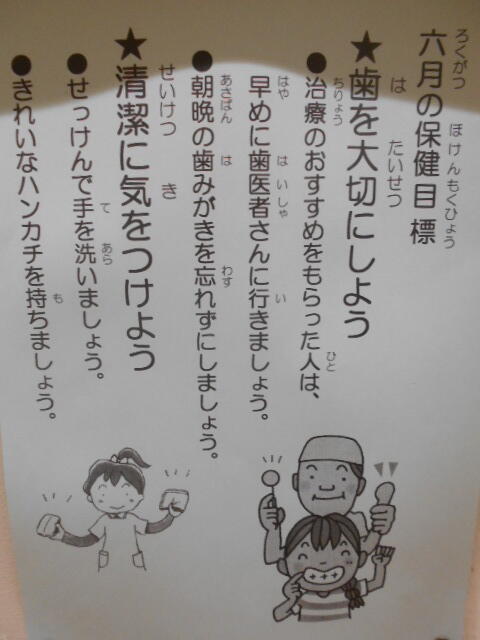 六月の保健目標
★歯を大切にしよう
●治療のおすすめをもらった人は、
早めに歯医者さんに行きましょう。
●朝晩の歯みがきを忘れずにしましょう。
★清潔に気をつけよう
●せっけんで手を洗いましょう。
●きれいなハンカチを持ちましょう。